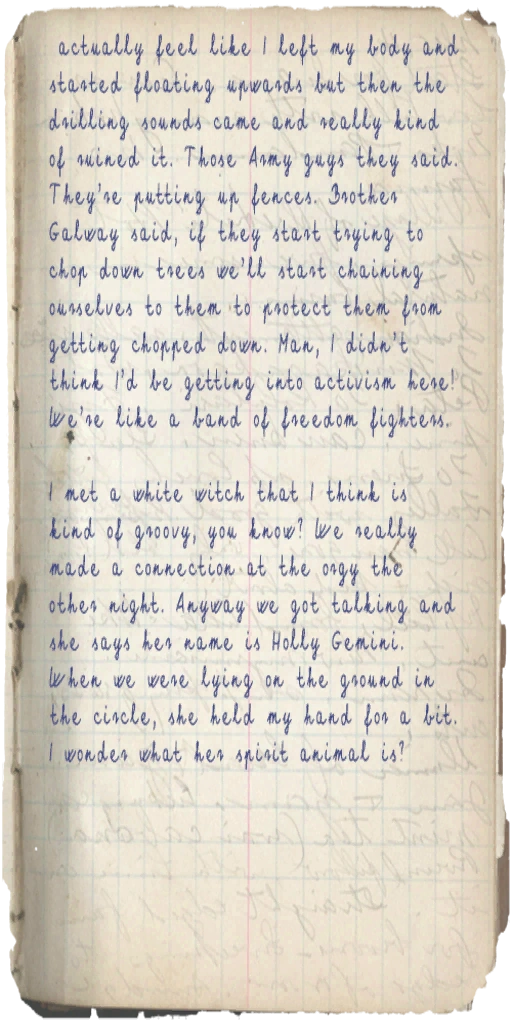 actually feel like I left my body and
started floating upwards but then the
drilling sounds came and really kind
of ruined it. Those Army guys they said.
They're putting up fences. Brother
Galway said, if they start trying to
chop down trees we'll start chaining
ourselves to them to protect them from
getting chopped down. Man, I didn't
think I'd be getting into activism here!
We're like a band of freedom fighters.
I met a white witch that I think is
kind of groovy, you know? We really
made a connection at the orgy the
other night. Anyway we got talking and
she says her name is Holly Gemini.
When we were lying on the ground in
the circle, she held my hand for a bit.
I wonder what her spirit animal is?